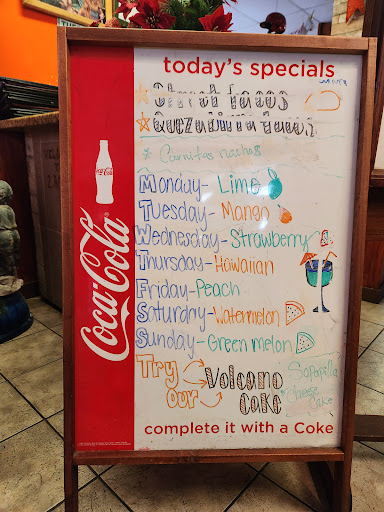 today's specials
Street tacos
Quezabirria tacos
* Carnitas nachos
Monday - Lime
Tuesday - Mango
Wednesday - Strawberry
Thursday - Hawaiian
Friday - Peach
Saturday - Watermelon
Sunday - Green melon
Try our Volcano Cake
Sopapilla
Cheese Cake
complete it with a Coke
Coca-Cola